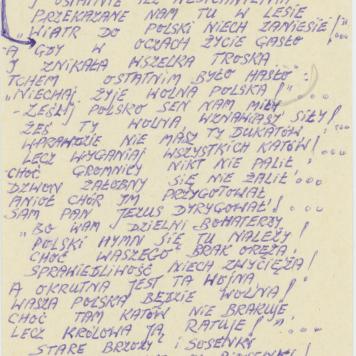 I OSTATNIE ICH WESTCHNIENIA
PRZEKAZANE NAM TU W LESIE
"WIATR DO POLSKI NIECH ZANIESIE!"...
A GDY W OCZACH ŻYCIE GASŁO
I ZNIKAŁA WSZELKA TROSKA
TCHEM OSTATNIM BYŁO HASŁO:
"NIECHAJ ŻYJE WOLNA POLSKA!"...
- ZEŚLIJ POLSKO SEN NAM MIŁY
ŻEŚ TY WOLNA, WZNAWIASZ SIŁY!
WPRAWDZIE NIE MASZ TY DUKATÓW...
LECZ WYGANIAJ WSZYSTKICH KATÓW!...
CHOĆ GROMNICY NIKT NIE PALIŁ
DZWON ŻAŁOBNY SIĘ NIE ŻALIŁ...
ANIOŁ CHÓR IM PRZYGOTOWAŁ
SAM PAN JEZUS DYRYGOWAŁ!...
"BO WAM DZIELNI BOHATERZY
POLSKI HYMN SIĘ TU NALEŻY!
CHOĆ WASZEGO BRAK ORĘŻA
SPRAWIEDLIWOŚĆ NIECH ZWYCIĘŻA!
A OKRUTNA JEST TA WOJNA
WASZA POLSKA BĘDZIE WOLNA!
CHOĆ TAM KATÓW NIE BRAKUJE
LECZ KRÓLOWA JĄ RATUJE!"...
STARE BRZOZY I SOSENKI